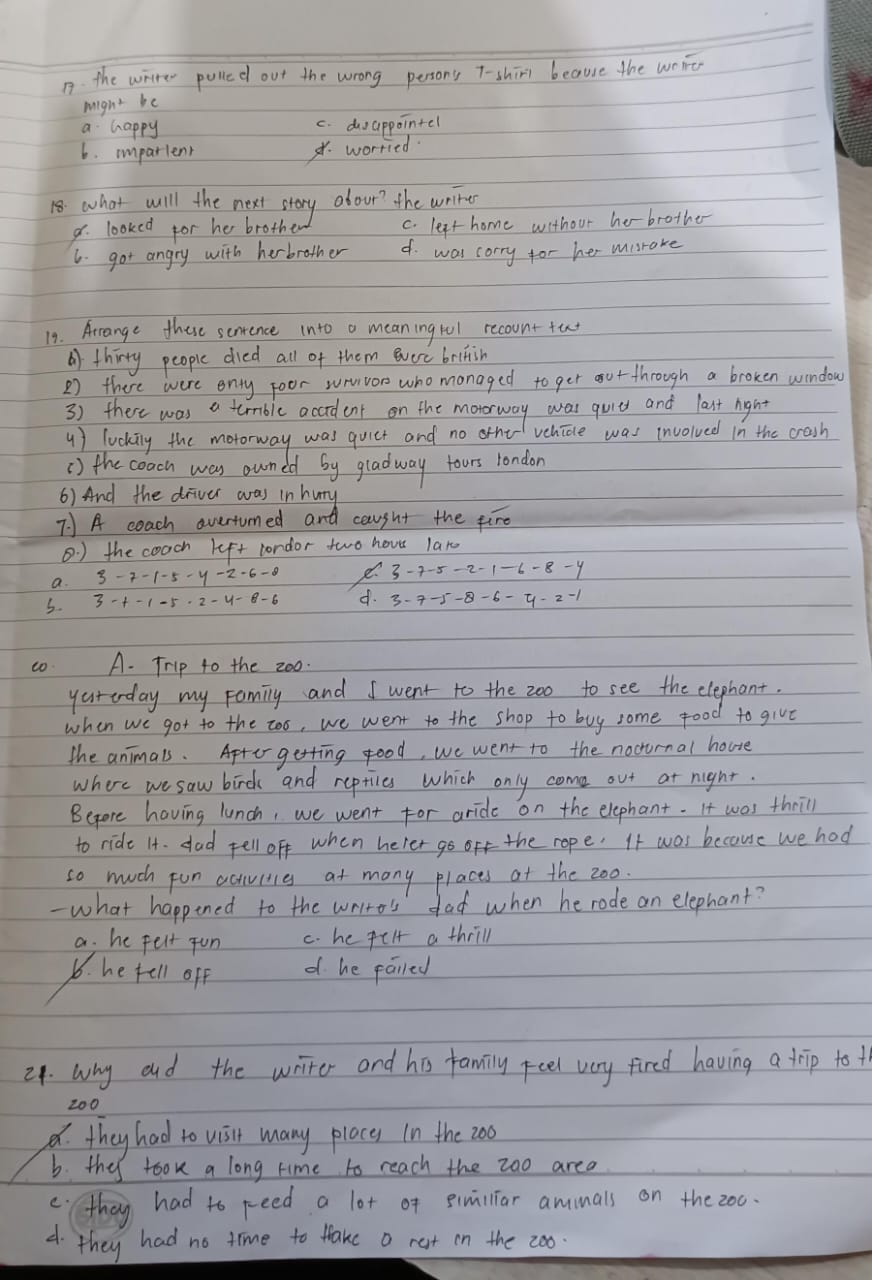 17. the writer pulled out the wrong person's T-shirt beause the writer
might be
a. happy c. disappointel
b. impatient d. worried
18. what will the next story about? the writer
a. looked for her brother c. left home without her brother
b. got angry with her brother d. was sorry for her mistake
19. Arrange these sentence into a meaningful recount text
1) thirty people died all of them were british
2) there were only four survivors who managed to get out through a broken window
3) there was a terrible accident on the motorway was quiet and last night
4) luckily the motorway was quiet and no other vehicle was involved in the crash
5) the coach was owned by gladway tours london
6) And the driver was in hurry
7.) A coach overturned and caught the fire
8.) the coach left london two hours late
a. 3-7-1-5-4-2-6-8 c. 3-7-5-2-1-6-8-4
b. 3-7-1-5-2-4-8-6 d. 3-7-5-8-6-4-2-1
20. A- Trip to the zoo.
yesterday my family and I went to the zoo to see the elephant.
when we got to the zoo, we went to the shop to buy some food to give
the animals. After getting food, we went to the nocturnal house
where we saw birds and reptiles which only come out at night.
Before having lunch, we went for a ride on the elephant. It was thrill
to ride it. dad fell off when he let go off the rope. It was because we had
so much fun activities at many places at the zoo.
-what happened to the writer's dad when he rode an elephant?
a. he felt fun c. he felt a thrill
b. he fell off d. he failed
21. Why did the writer and his family feel very tired having a trip to th
zoo
a. they had to visit many places in the zoo
b. they took a long time to reach the zoo area
c. they had to feed a lot of similiar animals on the zoo.
d. they had no time to take a rest in the zoo.